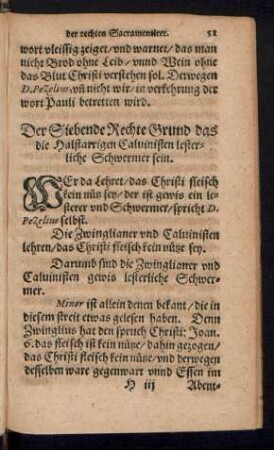 der rechten Sacramentirer. 51
wort vleissig zeiget/ vnd warnet/ das man
nicht Brod ohne Leib/ vnnd Wein ohne
das Blut Christi verstehen sol. Derwegen
D. Pezelius, vñ nicht wir/ in verkehrung der
wort Pauli betretten wird.
Der Siebende Rechte Grund das
die Halstarrigen Caluinisten lester-
liche Schwermer sein.
WEr da Lehret/ das Christi fleisch
kein nütz sey/ der ist gewis ein le-
sterer vnd Schwermer/ spricht D.
Pezelius selbst.
Die Zwinglianer vnd Caluinisten
lehren/ das Christi fleisch kein nütze sey.
Darumb sind die Zwinglianer vnd
Caluinisten gewis lesterliche Schwer-
mer.
Minor ist allein denen bekant/ die in
diesem streit etwas gelesen haben. Denn
Zwinglius hat den spruch Christi: Joan.
6. das fleisch ist kein nütze/ dahin gezogen/
das Christi fleisch kein nütze/ vnd derwegen
desselben ware gegenwart vnnd Essen im
H iij Abent-